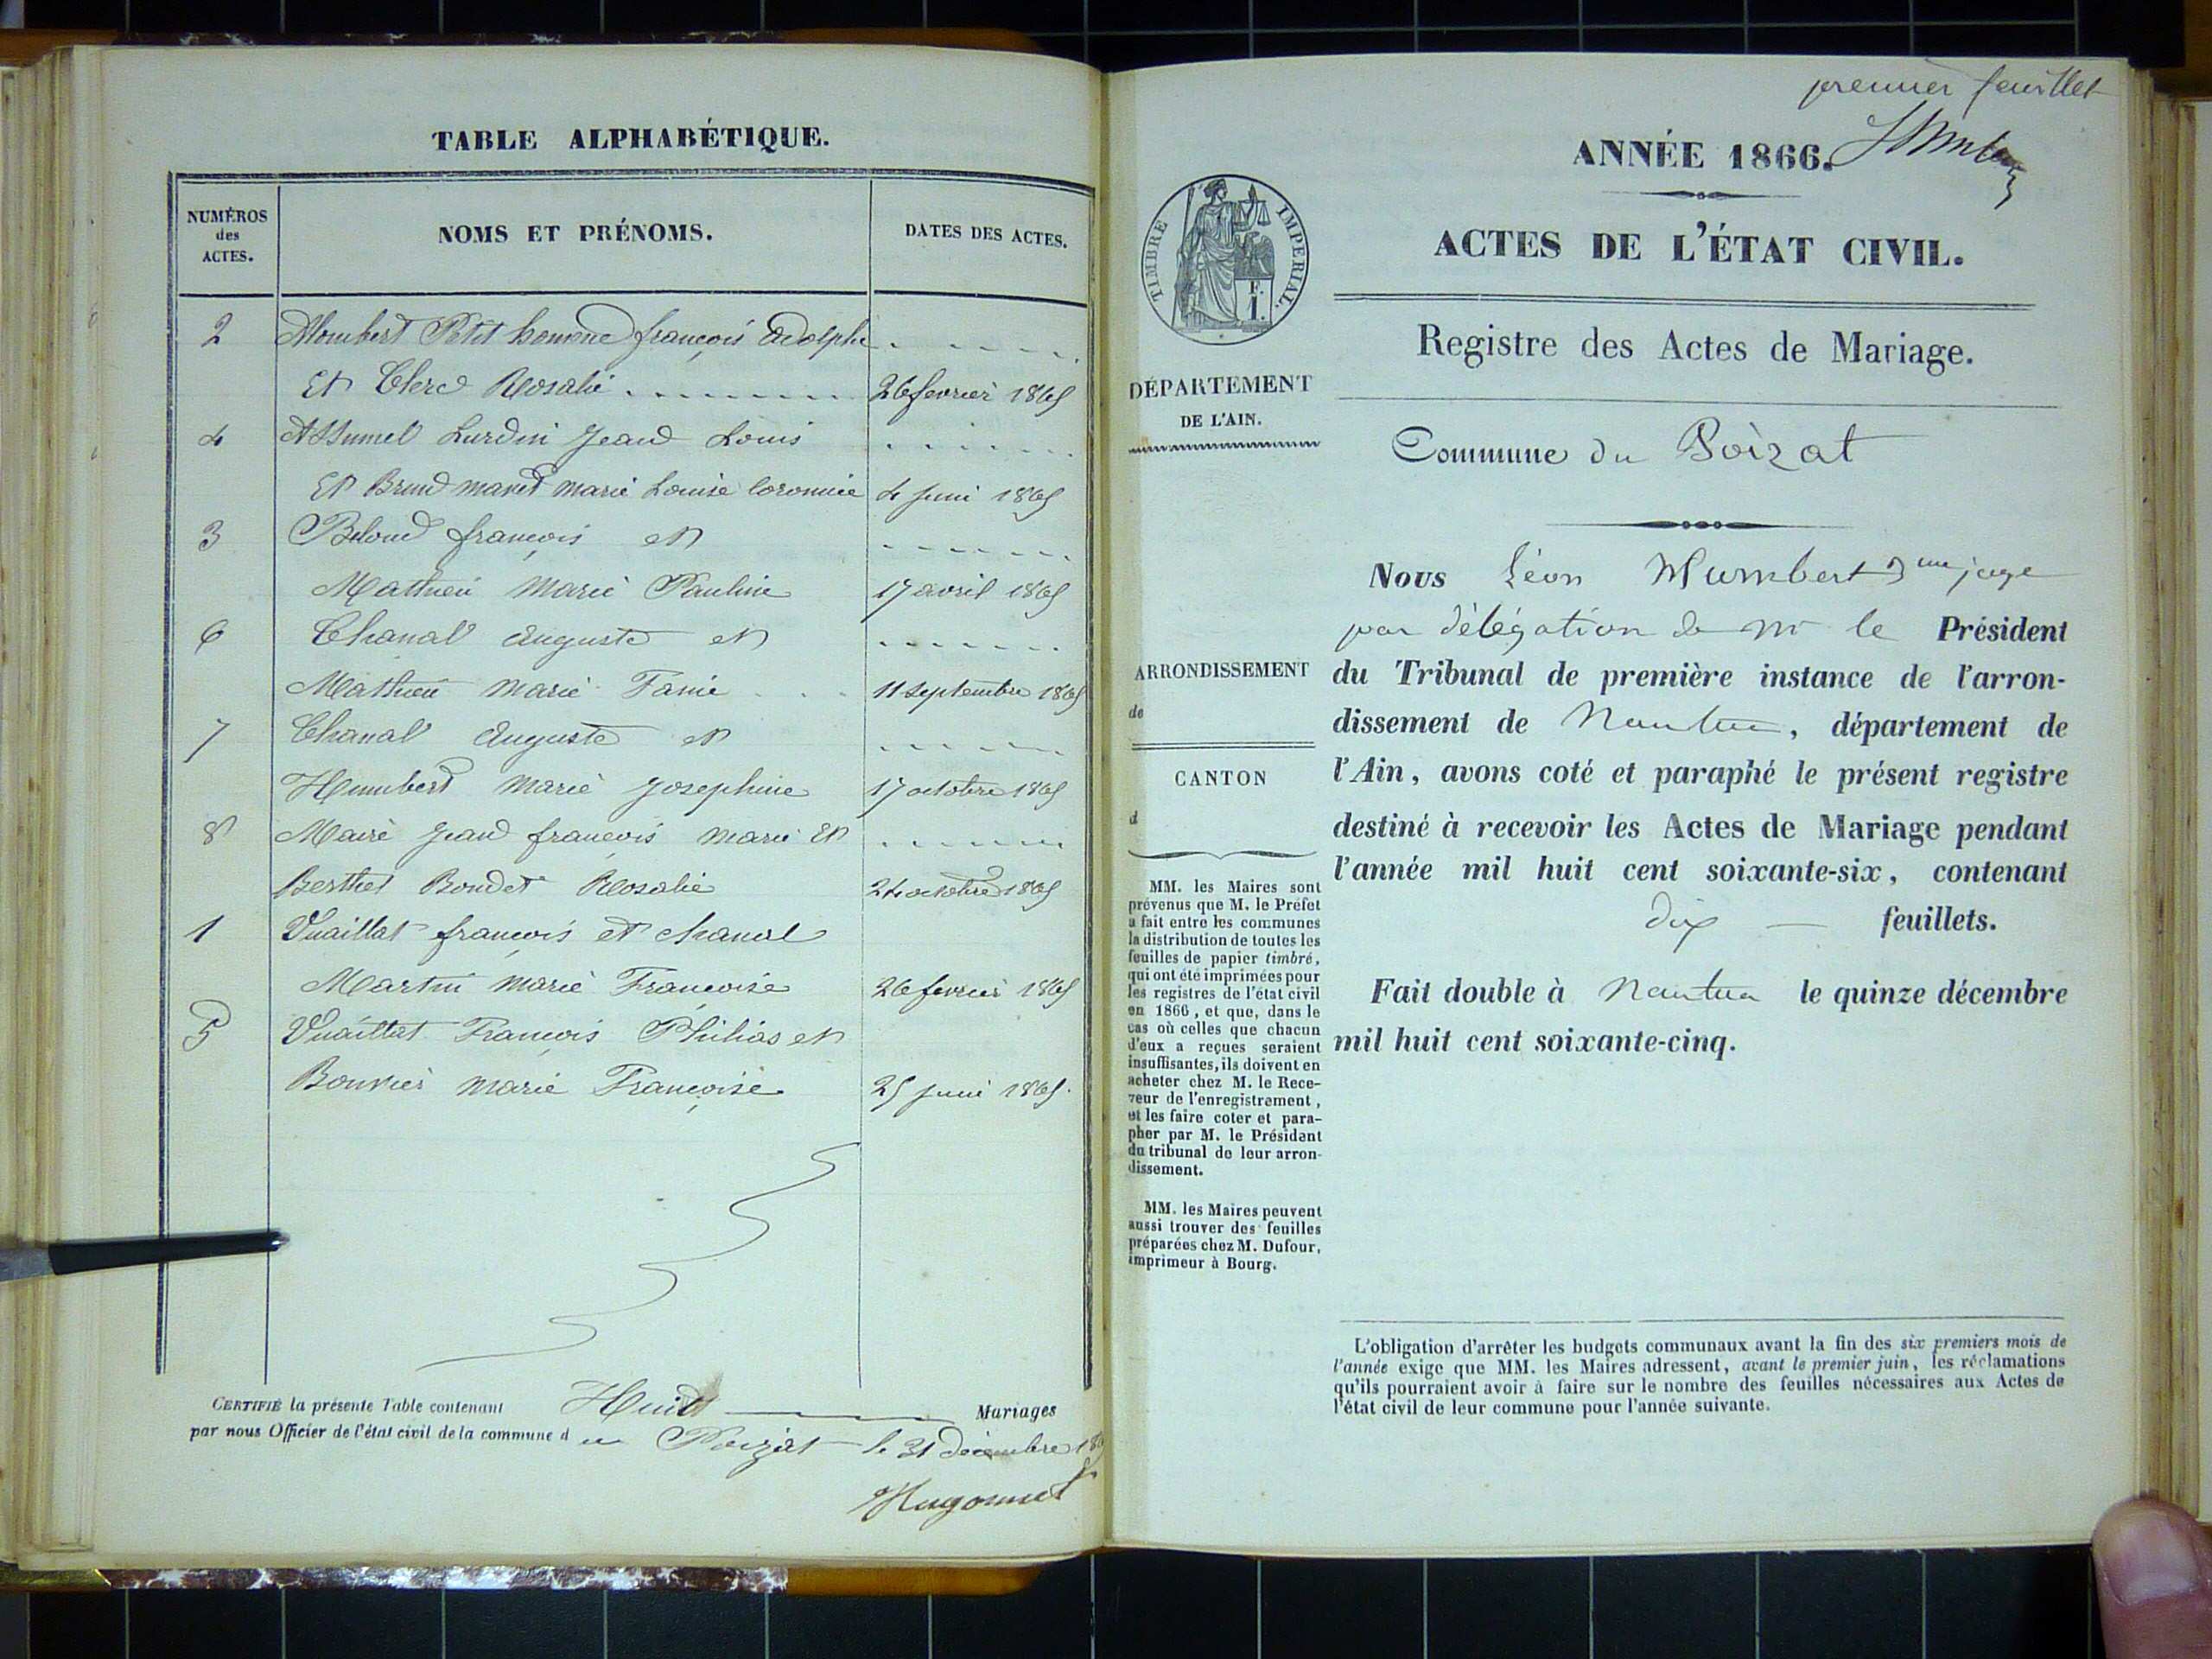 TABLE ALPHABÉTIQUE.
NUMÉROS des ACTES.
NOMS ET PRÉNOMS.
DATES DES ACTES.
2 Mombert Petit homme françois Adolphe
Et Clerc Rosalie 26 fevrier 1865
4 Assumel Lurdin Jean Louis
Et Brund manet marie Louise 4 juin 1865
3 Beloud françois et
Mathieu Marie Pauline 17 avril 1865
6 Chanal Auguste et
Mathieu Marie Fanie 11 septembre 1865
7 Chanal Auguste et
Humbert Marie Josephine 17 octobre 1865
8 Maire Jean françois marie Et
Berthet Bondet Rosalie 24 octobre 1865
1 Vuaillat françois et chanal
Martin Marie Françoise 26 fevrier 1865
5 Vuaillat François Philias et
Bouvier marie Françoise 25 juin 1865.
CERTIFIÉ la présente Table contenant Huit Mariages
par nous Officier de l'état civil de la commune du Poizat le 31 décembre 18
Hugonnet
premier feuillet
ANNÉE 1866.
ACTES DE L'ÉTAT CIVIL.
TIMBRE IMPERIAL.
F. 1.
Registre des Actes de Mariage.
DÉPARTEMENT
DE L'AIN.
Commune du Poizat
Nous Léon Humbert juge
par délégation de Mr le Président
ARRONDISSEMENT
de
du Tribunal de première instance de l'arron-
dissement de Nantua, département de
CANTON
d
l'Ain, avons coté et paraphé le présent registre
destiné à recevoir les Actes de Mariage pendant
l'année mil huit cent soixante-six, contenant
dix — feuillets.
Fait double à Nantua le quinze décembre
mil huit cent soixante-cinq.
MM. les Maires sont
prévenus que M. le Préfet
a fait entre les communes
la distribution de toutes les
feuilles de papier timbré,
qui ont été imprimées pour
les registres de l'état civil
en 1866, et que, dans le
cas où celles que chacun
d'eux a reçues seraient
insuffisantes, ils doivent en
acheter chez M. le Rece-
veur de l'enregistrement,
et les faire coter et para-
pher par M. le Président
du tribunal de leur arron-
dissement.
MM. les Maires peuvent
aussi trouver des feuilles
préparées chez M. Dufour,
imprimeur à Bourg.
L'obligation d'arrêter les budgets communaux avant la fin des six premiers mois de
l'année exige que MM. les Maires adressent, avant le premier juin, les réclamations
qu'ils pourraient avoir à faire sur le nombre des feuilles nécessaires aux Actes de
l'état civil de leur commune pour l'année suivante.